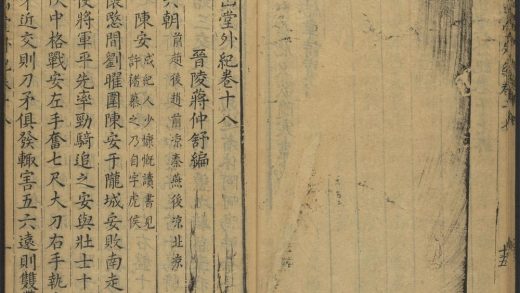 山堂外紀卷十八
晉陵蔣仲舒編
六朝
前趙後趙前凉秦燕後凉北凉
陳安
成紀人少慷慨讀書見
許諸慕之乃自字虎侯
懷愍間劉曜圍陳安于隴城安敗南走
使將軍平先率勁騎追之安與壯士十
中格戰安左手奮七尺大刀右手執
矛近交則刀矛俱發輙害五六遠則雙